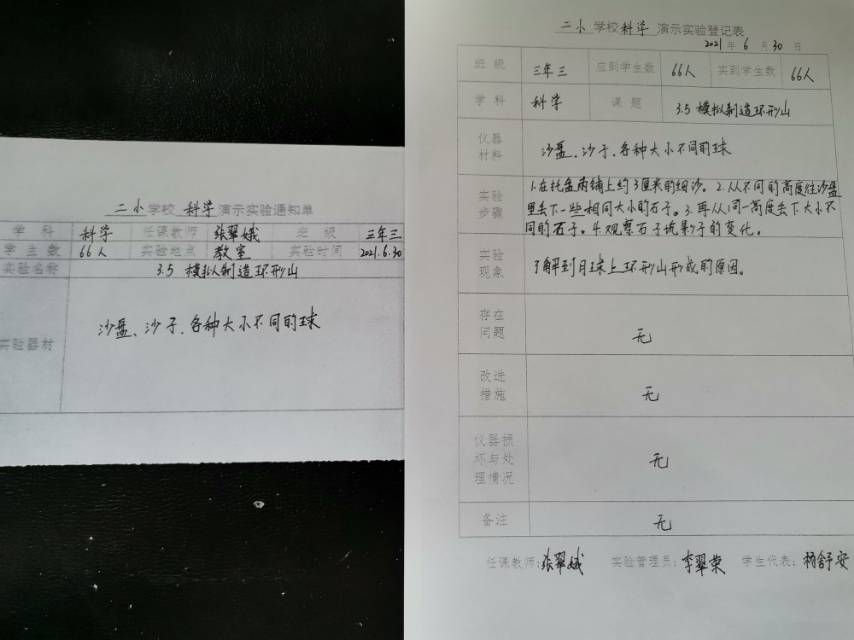 二小学校科学演示实验通知单
学科 科学 任课教师 张翠娥 班级 三年三
学生数 66人 实验地点 教室 实验时间 2021.6.30
实验名称 3.5 模拟制造环形山
实验器材 沙盘、沙子、各种大小不同的球
二小学校科学演示实验登记表
2021年6月30日
班级 三年三 应到学生数 66人 实到学生数 66人
学科 科学 课题 3.5 模拟制造环形山
仪器材料 沙盘、沙子、各种大小不同的球
实验步骤 1.在托盘内铺上约3厘米的细沙。2.从不同的高度往沙盘
里丢下一些相同大小的石子。3.再从同一高度丢下大小不
同的石子。4.观察石子坑的变化。
实验现象 了解到月球上环形山形成的原因。
存在问题 无
改进措施 无
仪器损坏与处理情况 无
备注 无
任课教师:张翠娥 实验管理员:李翠荣 学生代表:杨舒安